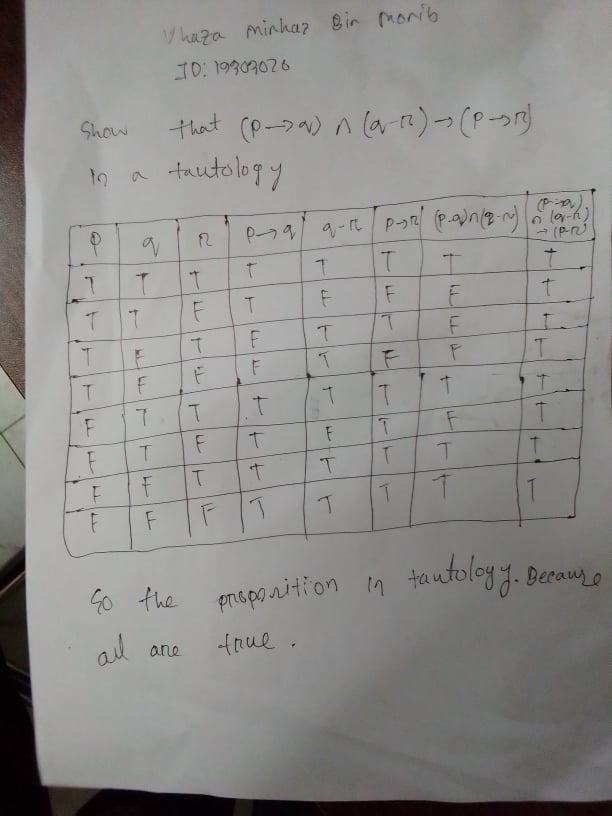 Khaza Minhaz Bin Monib
ID: 19303026
Show that (p→q) ∧ (q-r) → (p→r)
is a tautology
p q r p→q q-r p→r (p-q)∧(q-r) (p→q) ∧ (q-r) → (p-r)
T T T T T T T T
T T F T F F F T
T F T F T T F T
T F F F T F F T
F T T T T T T T
F T F T F T F T
F F T T T T T T
F F F T T T T T
So the proposition is tautology. Because
all are true.